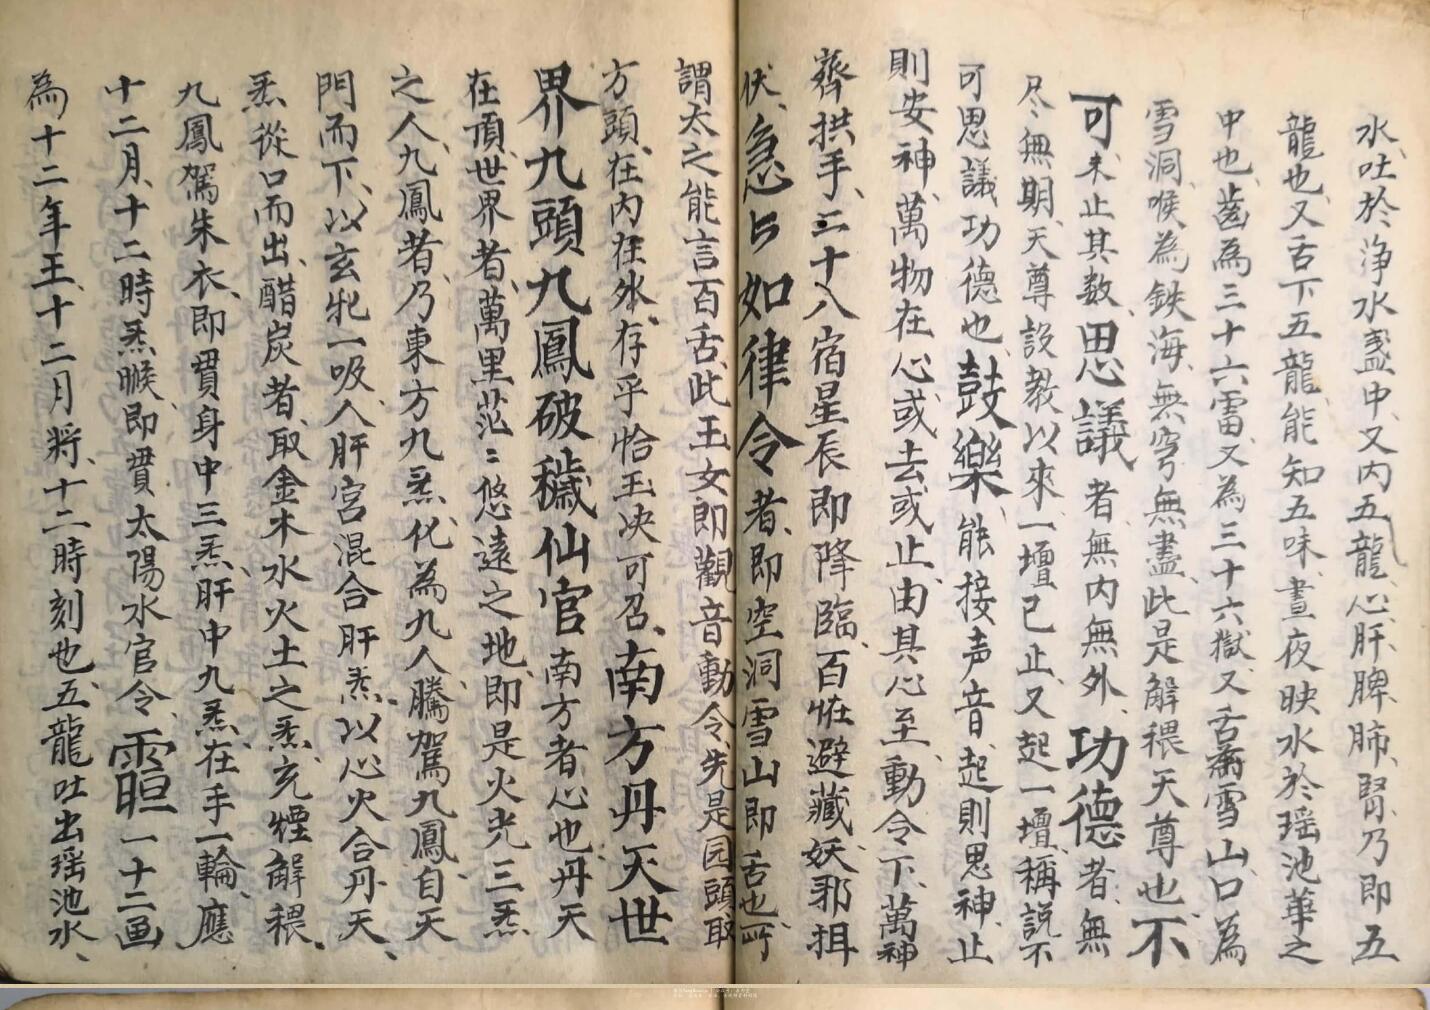 水吐於浄水盞中又内五龍心肝脾肺腎乃即五
龍也又舌下五龍能知五味晝夜映水於瑶池華之
中也齒為三十六雷又為三十六獄又舌為雪山口為
雪洞喉為鉄海無穹無盡此是解穢天尊也不
可未止其数思議者無内無外功德者無
尽無期天尊設教以來一壇已止又起一壇稱説不
可思議功德也鼓樂能接声音起則思神止
則安神萬物在心或去或止由其心至動令下萬神
齊拱手二十八宿星辰即降臨百怪避藏妖邪揖
伏急如律令者即空洞雪山即舌也所
謂太之能言百舌此王女即觀音動令先是园頭取
方頭在内在外存乎恰玉决可召南方丹天世
界九頭九鳳破穢仙官南方者心也丹天
在頂世界者萬里茫〻悠遠之地即是火光三炁
之人九鳳者乃東方九炁化為九人騰駕九鳳自天
門而下以玄牝一吸入肝宮混合肝炁以心火合丹天
炁從口而出醋炭者取金木水火土之炁玄煙解穢
九鳳駕朱衣即貫身中三炁肝中九炁在手一輪應
十二月十二時炁㬋即貫太陽水官令一十二畫
為十二年王十二月將十二時刻也五龍吐出瑶池水